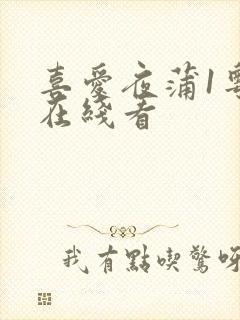 喜愛夜蒲1
在綫看
我有點喫驚呀